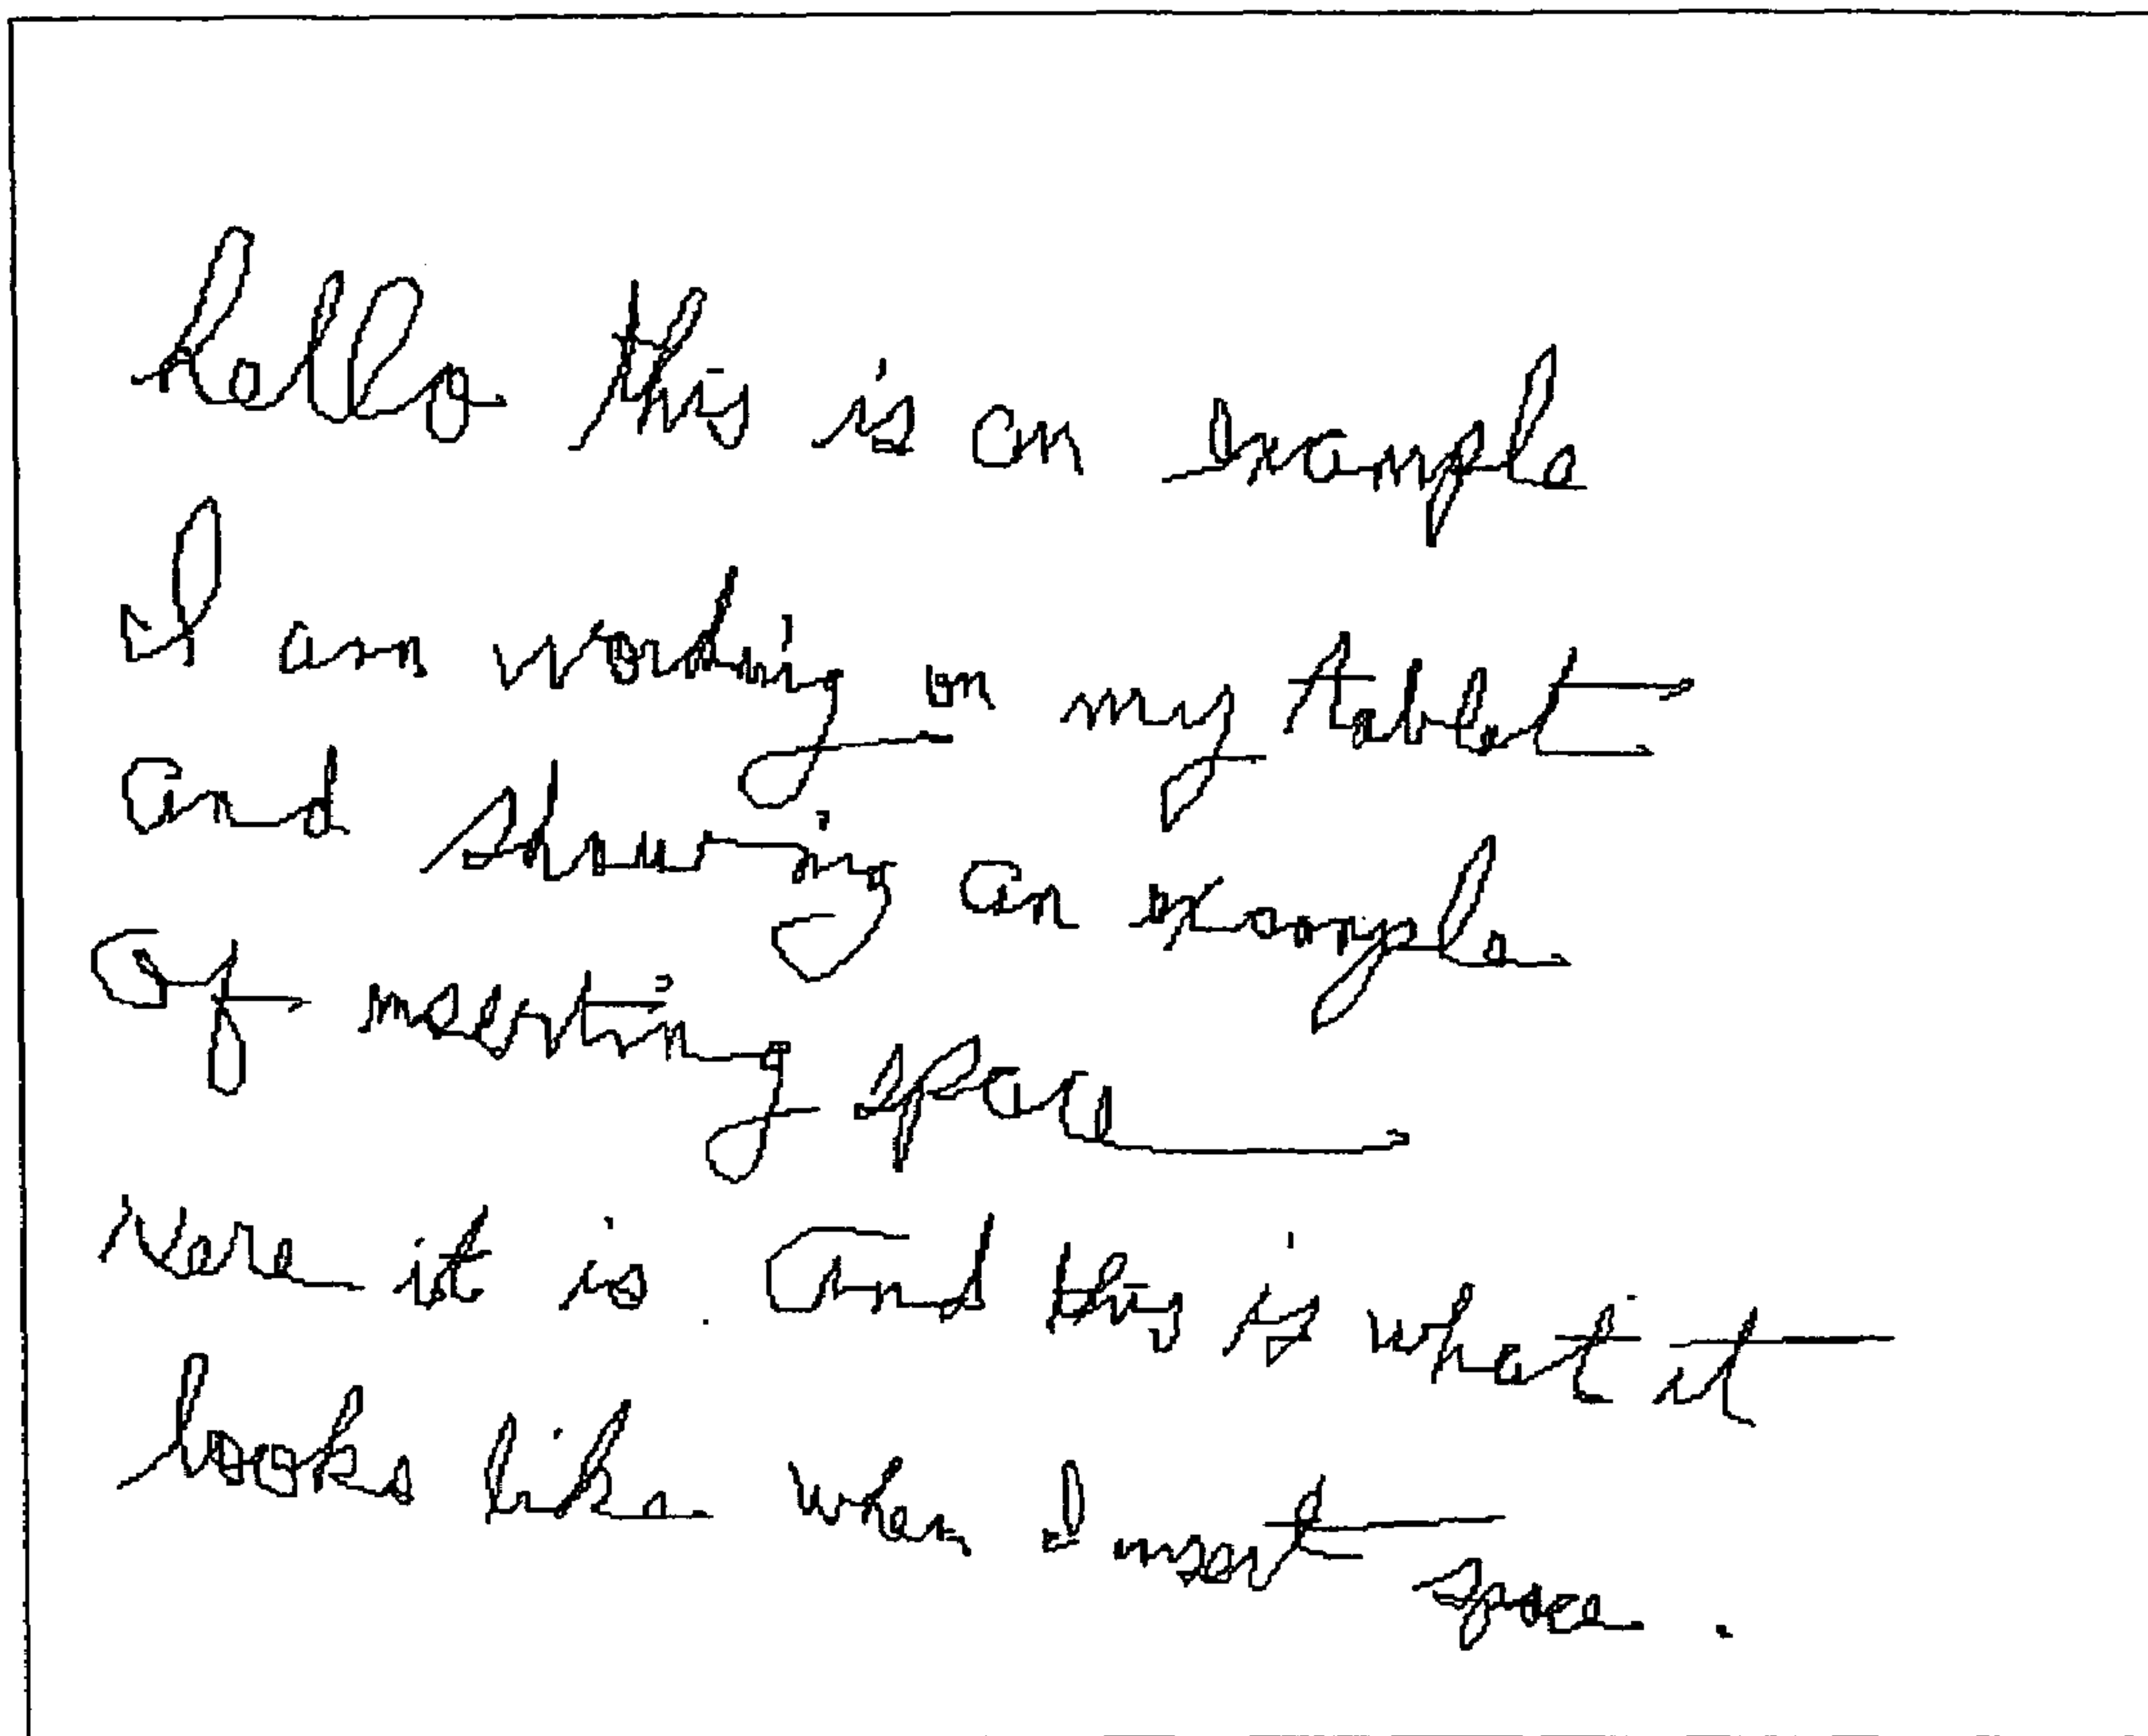 hello this is an example
I am working on my tablet
and showing an example
of inserting space
were it is. And this is what it
looks like when I insert space.